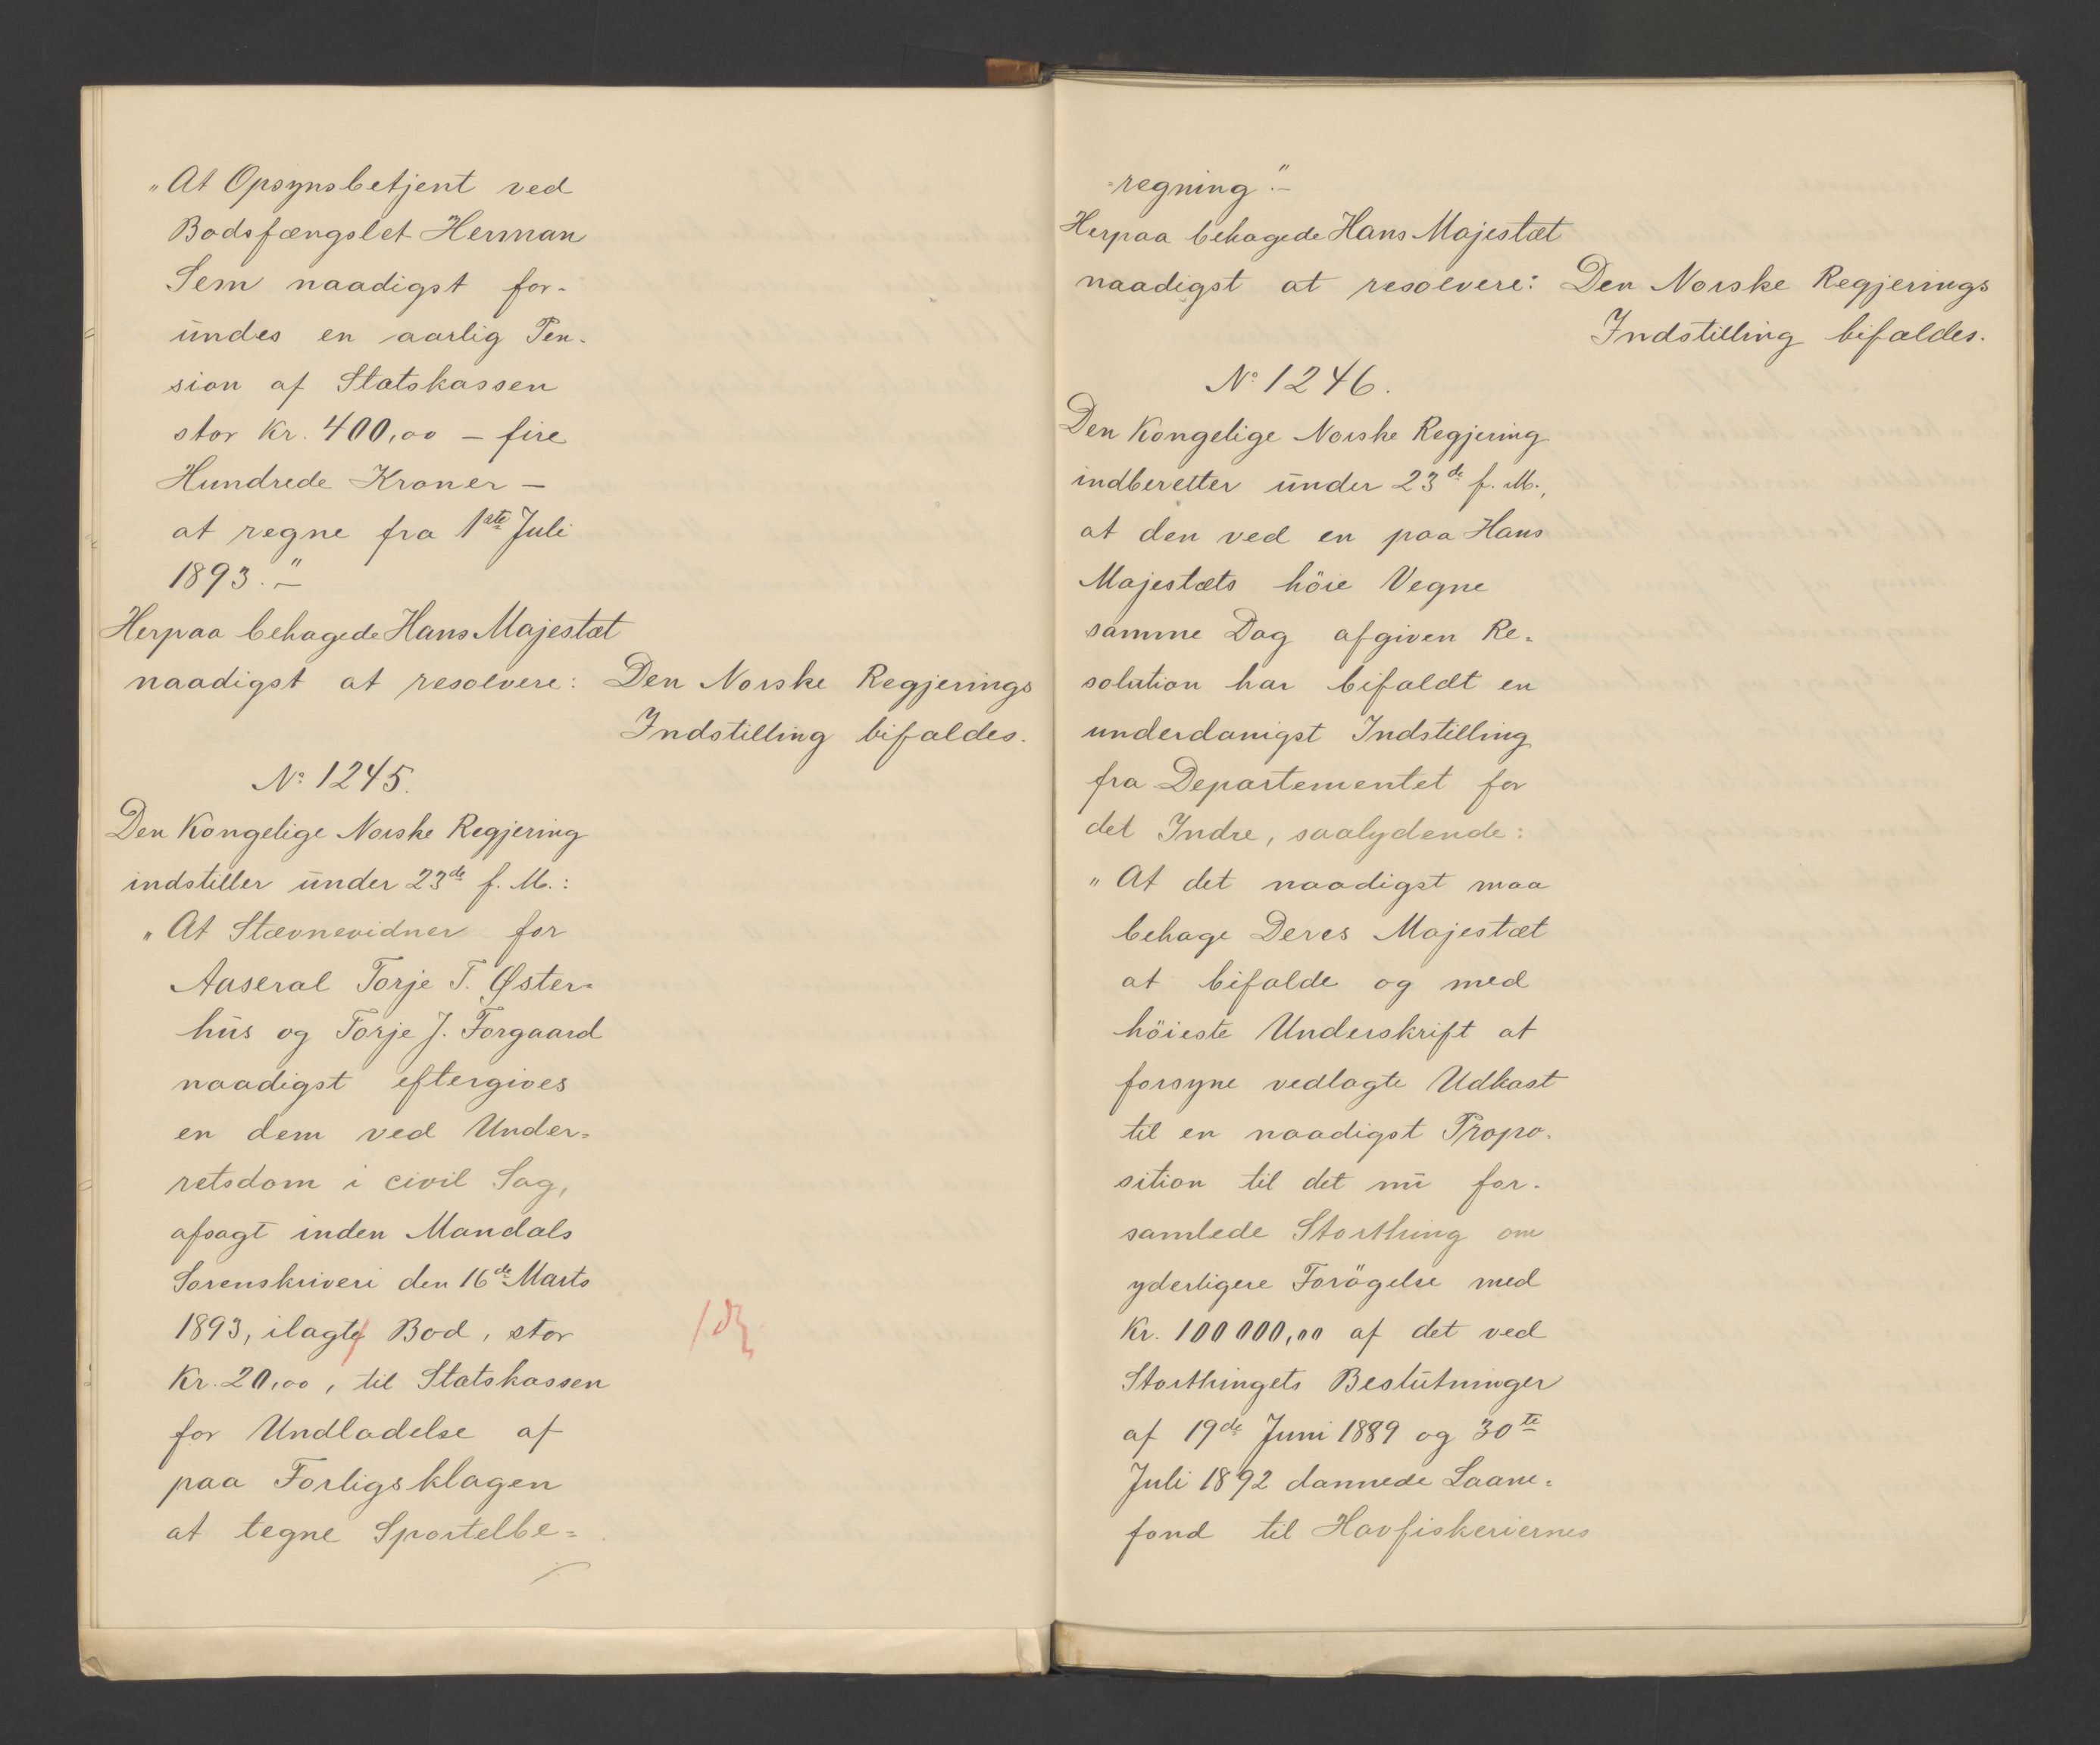 „At Opsynsbetjent ved
Bodsfængslet Herman
Sem naadigst for-
undes en aarlig Pen-
sion af Statskassen
stor Kr. 400,00 – fire
Hundrede Kroner –
at regne fra 1ste Juli
1893.“–
Herpaa behagede Hans Majestæt
naadigst at resolvere: Den Norske Regjerings
Indstilling bifaldes.
No 1245.
Den Kongelige Norske Regjering
indstiller under 23de f. M.:
„At Stævnevidner for
Aaseral Torje T. Øster=
hus og Torje J. Forgaard
naadigst eftergives
en dem ved Under=
retsdom i civil Sag,
afsagt inden Mandals
Sorenskriveri den 16de Marts
1893, ilagte Bod, stor
Kr. 20,00, til Statskassen
for Undladelse af
paa Forligsklagen
at tegne Sportelbe=
=regning“.–
Herpaa behagede Hans Majestæt
naadigst at resolvere: Den Norske Regjerings
Indstilling bifaldes.
No 1246.
Den Kongelige Norske Regjering
indberetter under 23de f. M.,
at den ved en paa Hans
Majestæts höie Vegne
samme Dag afgiven Re=
solution har bifaldt en
underdanigst Indstilling
fra Departementet for
det Indre, saalydende:
„At det naadigst maa
behage Deres Majestæt
at bifalde og med
höieste Underskrift at
forsyne vedlagte Udkast
til en naadigst Propo-
sition til det nu for-
samlede Storthing om
yderligere Forögelse med
Kr. 100 000,00 af det ved
Storthingets Beslutninger
af 19de Juni 1889 og 30te
Juli 1892 dannede Laane=
fond til Havfiskeriernes